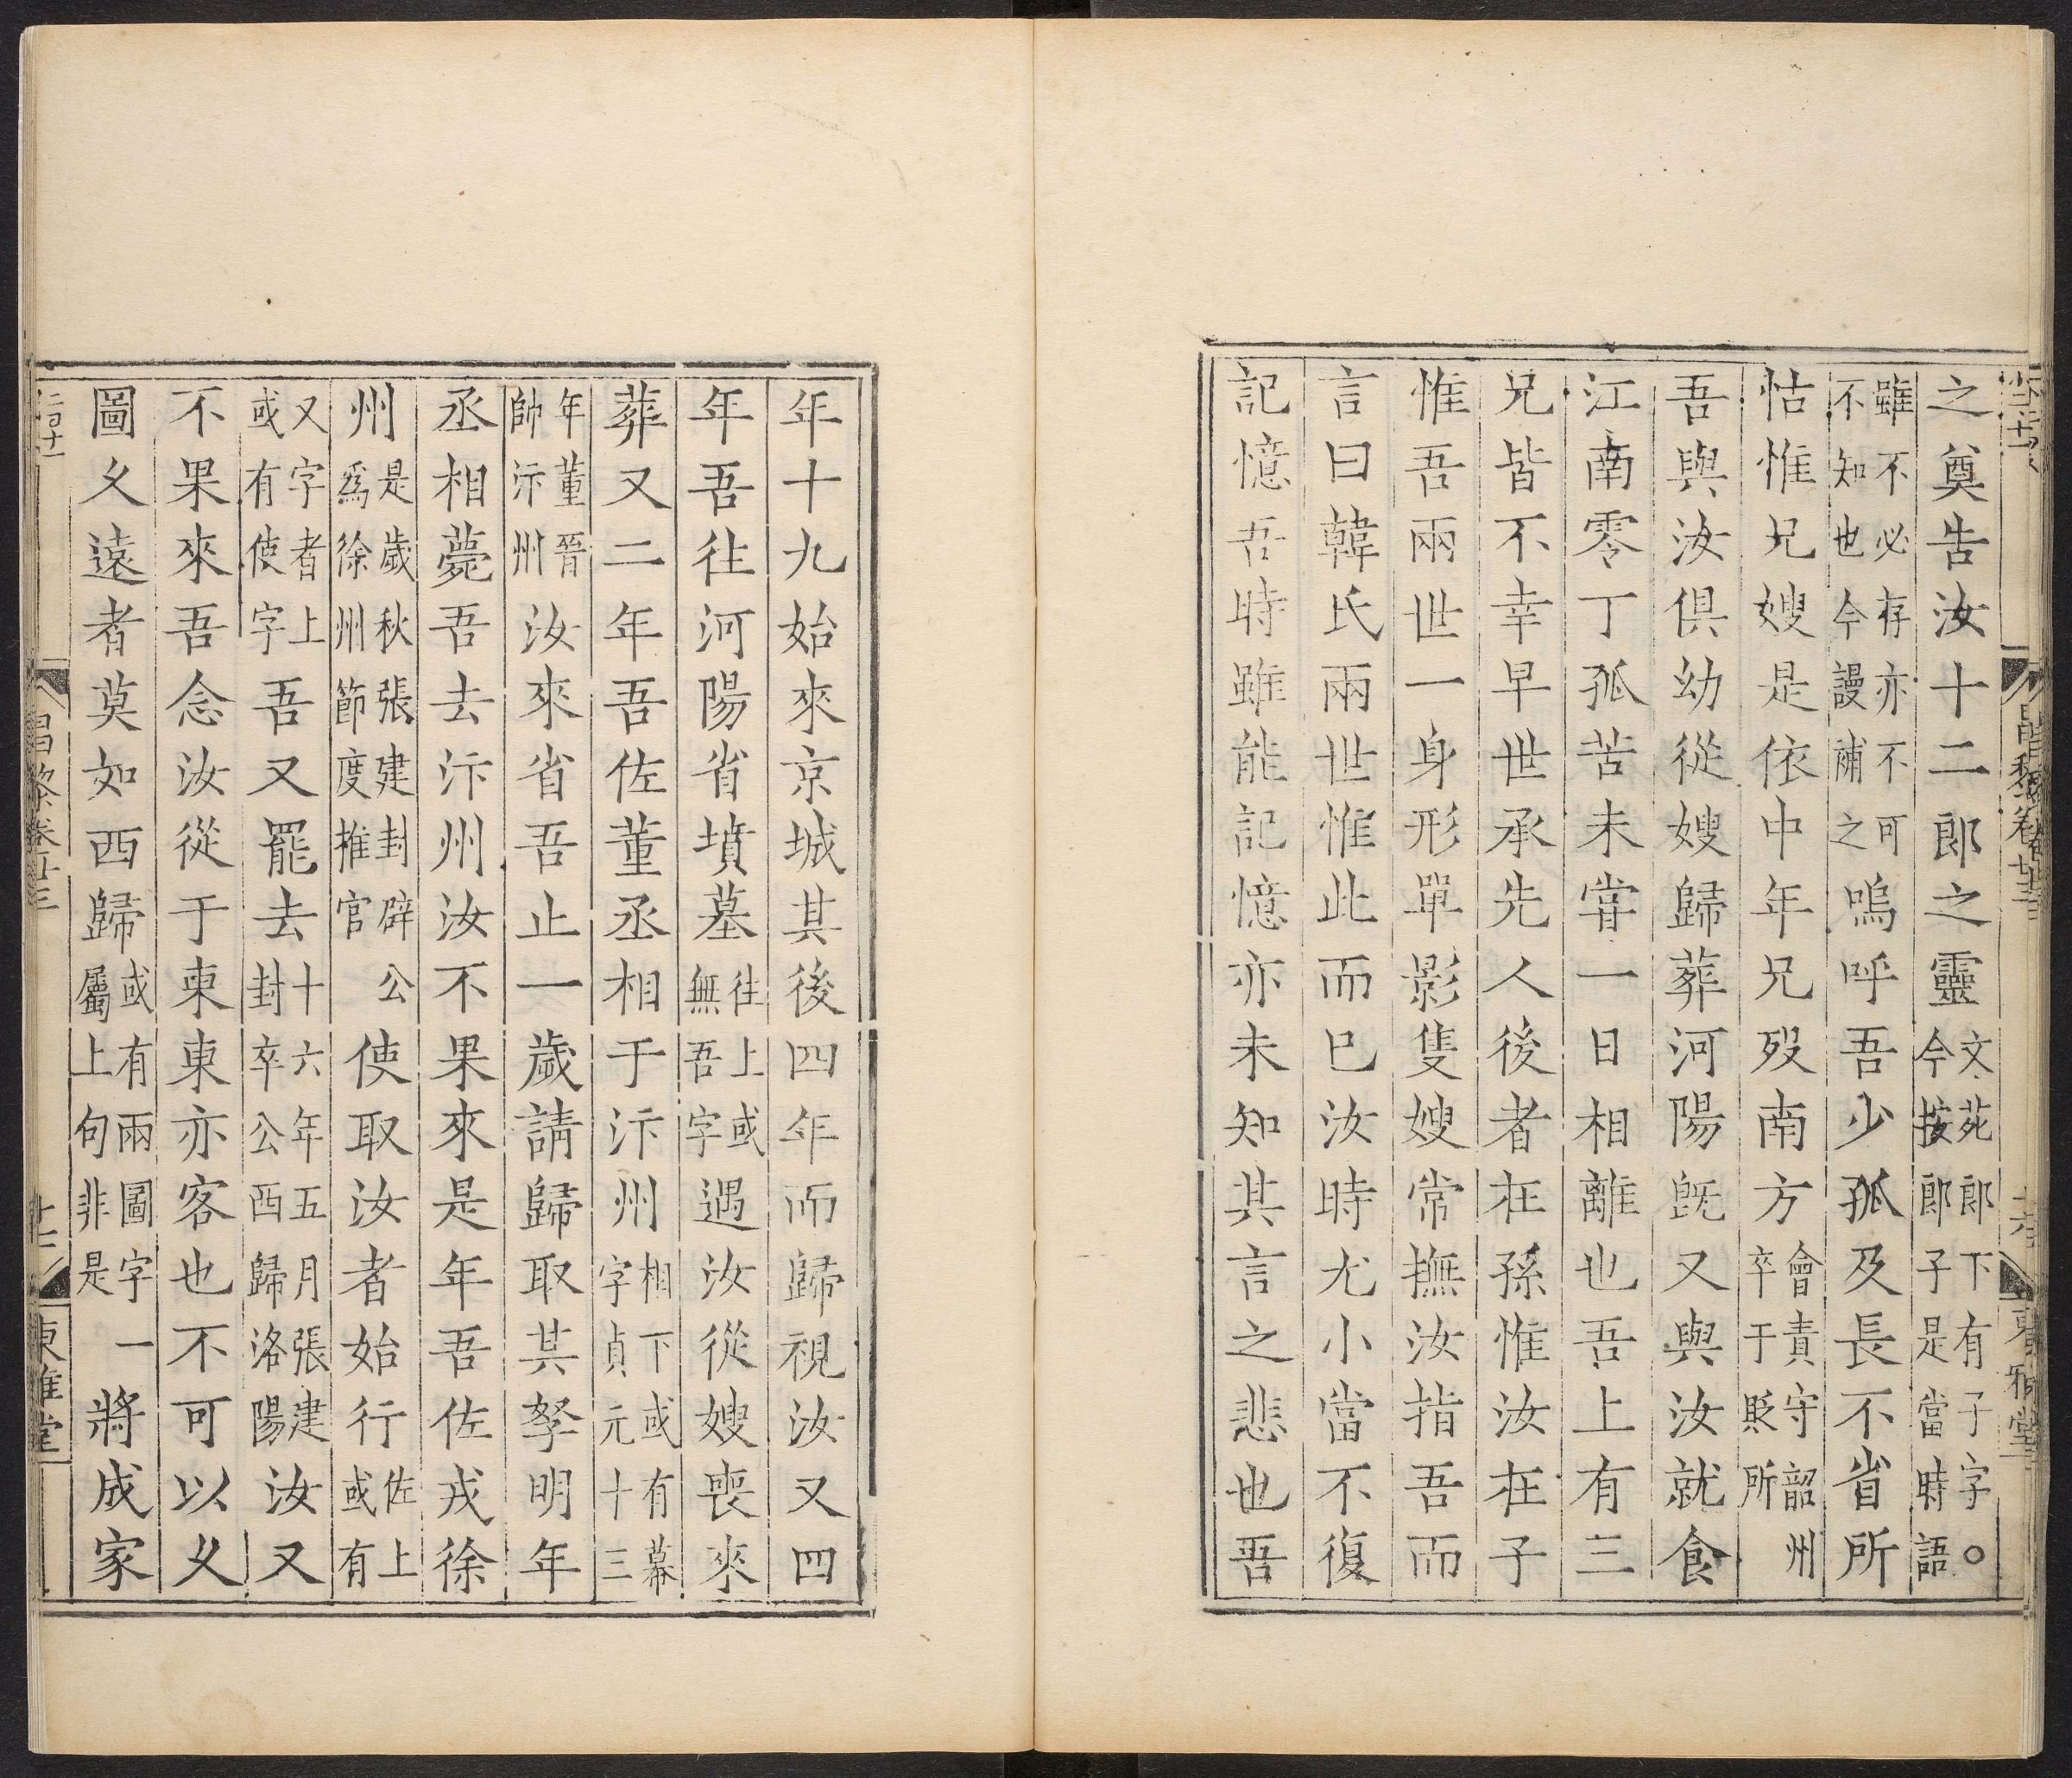 之奠告汝十二郎之靈文苑郎下有子字○今按郎子是當時語
雖不必存亦不可不知也今謾補之嗚呼吾少孤及長不省所
怙惟兄嫂是依中年兄歿南方會責守韶州卒于貶所
吾與汝俱幼從嫂歸葬河陽旣又與汝就食
江南零丁孤苦未甞一日相離也吾上有三
兄皆不幸早世承先人後者在孫惟汝在子
惟吾兩世一身形單影隻嫂常撫汝指吾而
言曰韓氏兩世惟此而已汝時尤小當不復
記憶吾時雖能記憶亦未知其言之悲也吾
年十九始來京城其後四年而歸視汝又四
年吾往河陽省墳墓往上或無吾字遇汝從嫂喪來
葬又二年吾佐董丞相于汴州相下或有幕字貞元十三
年董晉帥汴州汝來省吾止一歲請歸取其孥明年
丞相薨吾去汴州汝不果來是年吾佐戎徐
州是歲秋張建封辟公爲徐州節度推官使取汝者始行佐上或有
又字者上或有使字吾又罷去十六年五月張建封卒公西歸洛陽汝又
不果來吾念汝從于東東亦客也不可以久
圖久遠者莫如西歸或有兩圖字一屬上句非是將成家
昌黎卷廿三
十二
東雅堂